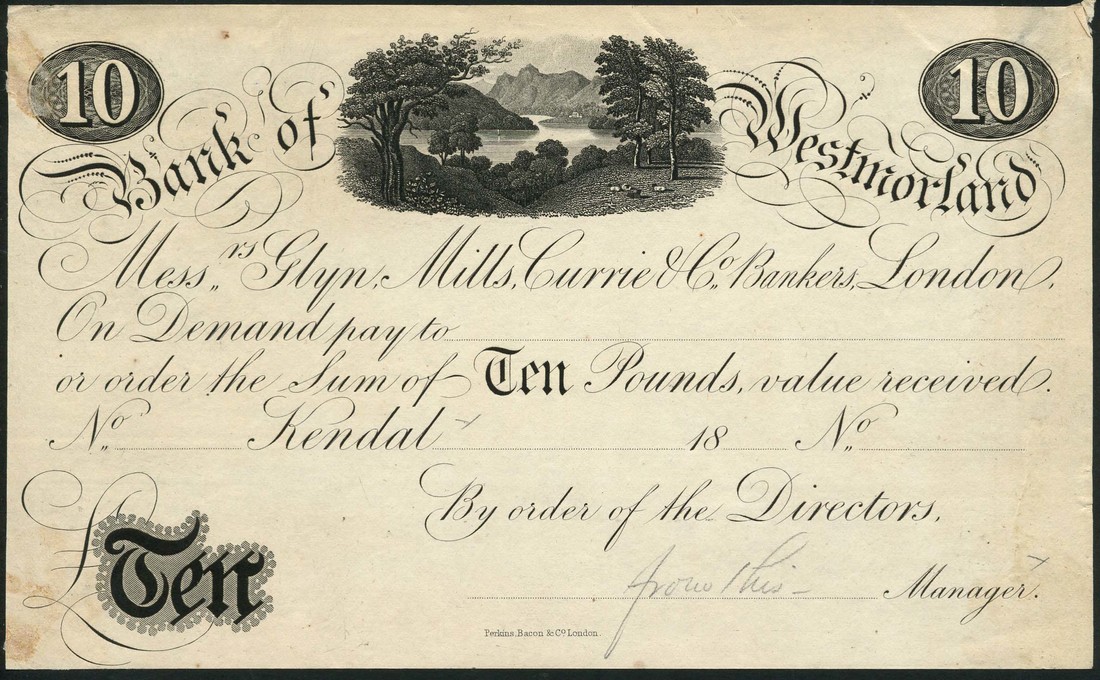 10 10
Bank of Westmorland
Mess,,rs Glyn, Mills, Currie & Co. Bankers, London,
On Demand pay to
or order the Sum of Ten Pounds, value received.
No. Kendal 18 No.
By order of the Directors,
£Ten
from this - Manager.
Perkins, Bacon & Co. London.